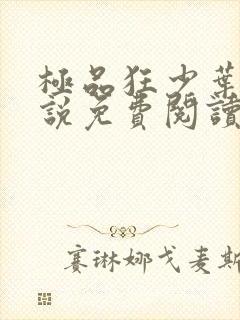 極品狂少葉
說免費閱讀
赛琳娜戈麦斯